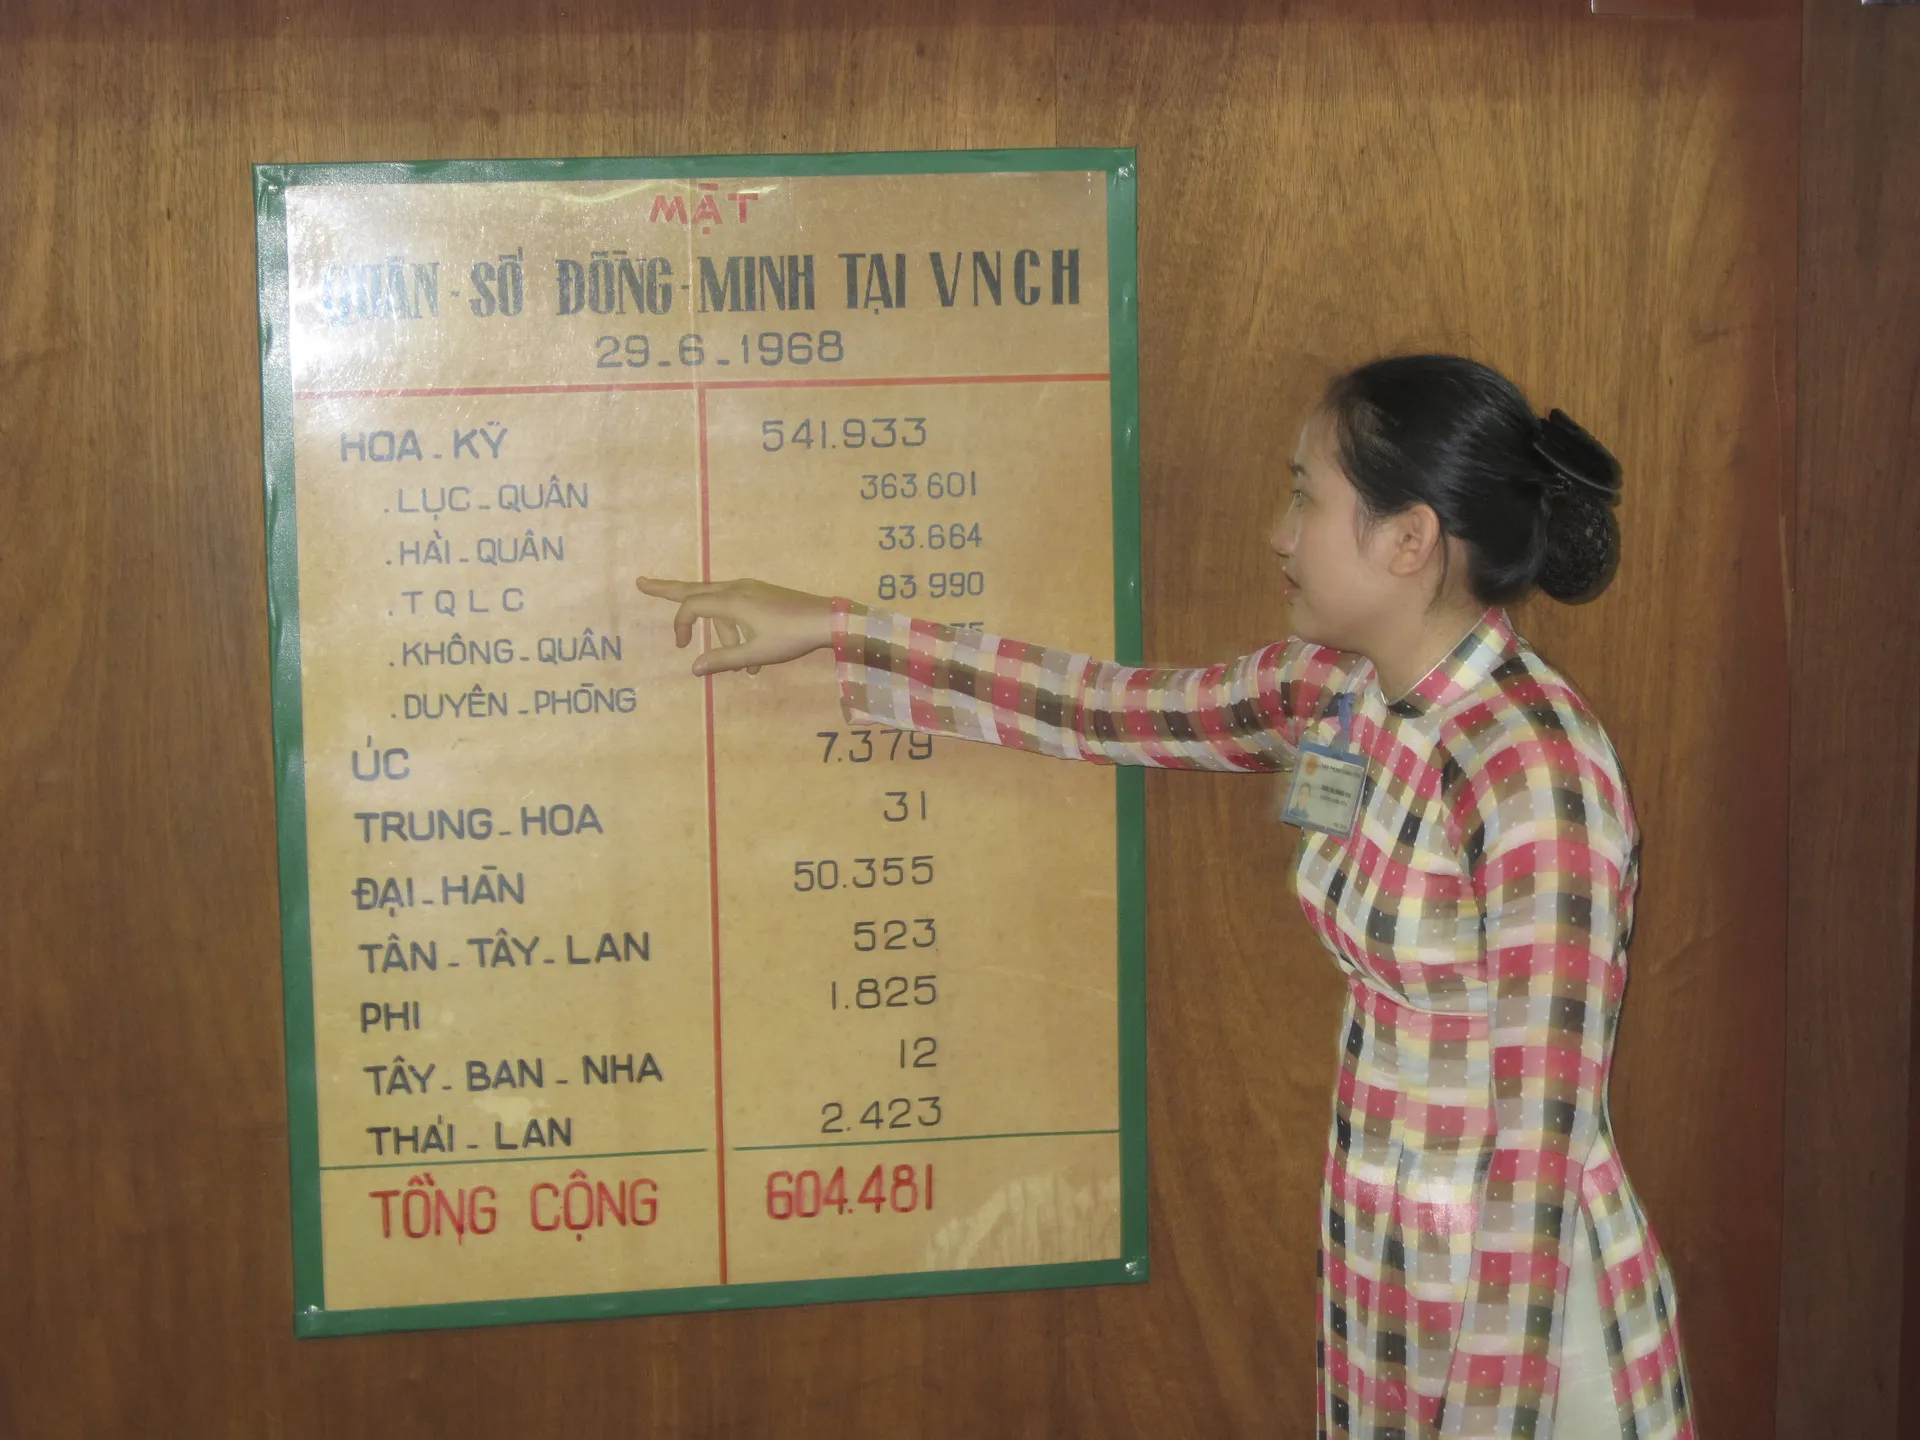 MẬT
QUÂN-SỐ ĐỒNG-MINH TẠI VNCH
29_6_1968
HOA_KỲ 541.933
.LỤC_QUÂN 363.601
.HẢI_QUÂN 33.664
.TQLC 83990
.KHÔNG_QUÂN
.DUYÊN_PHÒNG
ÚC 7.379
TRUNG_HOA 31
ĐẠI_HÀN 50.355
TÂN_TÂY_LAN 523
PHI 1.825
TÂY_BAN_NHA 12
THÁI_LAN 2.423
TỔNG CỘNG 604.481